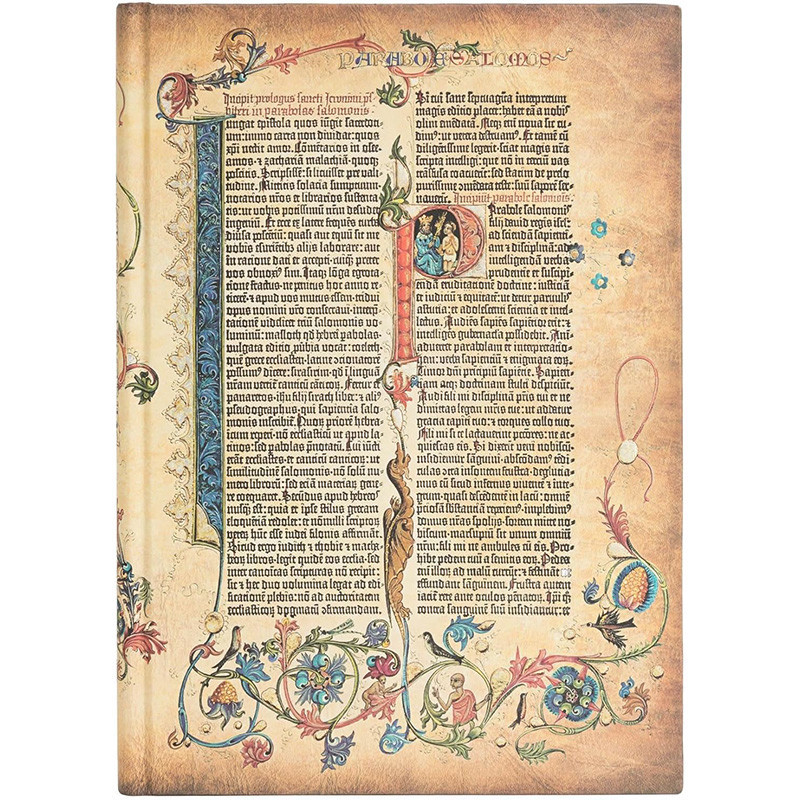 PARABOLE SALOMOIS
Incipit prologus sancti Jeronimi p̄s-
biteri in parabolas salomonis.
Iungat epistola quos iūgit sacerdo-
ium: immo carta non dividat: quos
xp̄i nectit amor. Cōmētarios in osee-
amos· ⁊ zachariā malachiā· quoqȝ
poscitis. Scripsissē: si licuisset pre vali-
tudine. Mittitis solacia sumptuum·
notarios nr̄os et librarios sustenta-
tis: ut vobis potissimū nr̄m desudet
ingeniū. Et ecce ex latere frequēs turba
diuersa poscētiū: quasi aut equū sit me
vobis esuriētibȝ alijs laborare: aut
in ratione dati et accepti· cuiqȝ preter
vos obnoxiꝰ sim. Itaqȝ lōga egrota-
tione fractus· ne penitus hoc anno re-
ticerē· ⁊ apud vos mutus essem· tridui
opus nomini vr̄o consecraui· interp̄-
tationē videlicet triū salomonis vo-
luminū: masloth qd̓ hebrei pabolas·
vulgata editio ꝓūbia vocat: coeleth·
quē grece ecclesiasten· latine ɔcionatorē
possumꝰ dicere: sirasirim· qd̓ ī linguā
nr̄am vertit̄ canticū cāticoꝝ. Fertur et
panaretos· ihū filij sirach liber: ⁊ aliꝰ
pseudographus· qui sapientia salo-
monis inscribit̄. Quoꝝ priorē hebra-
icum repperi· nō ecclesiasticū ut apud la-
tinos: sed pabolas p̄notatū. Cui iūcti
erāt ecclesiastes· et canticū canticoꝝ: ut
similitudinē salomonis· nō solū nu-
mero librorū: sed etiā materiaꝝ gene-
re coequaret. Secūdus apud hebreos
nusqȝ est: quia et ipse stilus grecam
eloquētiā redolet: et nōnulli scriptoꝝ
veteꝝ hūc esse iudei filonis affirmāt.
Sicut ergo iudith ⁊ thobie ⁊ macha-
beoꝝ libros· legit quidē eos ecclesia· sed
inter canonicas scripturas nō recipit:
sic ⁊ hec duo volumina legat ad edi-
ficationē plebis: nō ad auctoritatem
ecclesiasticoꝝ dogmatū ɔfirmandam.
Si cui sane septuaginta interpretum
magis editio placet: habet eā a nobis
olim emēdatā. Neqȝ em̄ noua sic cu-
dimꝰ: ut vetera destruamꝰ. Et tamē cū
diligentissime legerit· sciat magis nr̄a
scripta intelligi: que nō in terciū vas
trāsfusa coacuerīt: sed statim de prelo
purissime ɔmēdata teste: suū sapore ser-
uauerīt. Incipiūt parabole salomonis
Parabole salomonis
filij dauid regis isrl̄:
ad sciendā sapienti-
am ⁊ disciplinā: ad
intelligendā verba
prudentie et suscipi-
endā eruditationē doctrine: iusticiā
et iudiciū ⁊ equitatē: ut detur paruulis
astutia: et adolescenti sciencia et intel-
lectus. Audiēs sapiēs sapientior erit: ⁊
intelligēs gubernacla possidebit. Ani-
aduertet parabolam et interpretatio-
nem: verba sapientiū ⁊ enigmata eoꝝ.
Timor dn̄i principiū sapiētie. Sapien-
tiam atqȝ doctrinam stulti despiciūt.
Audi fili mi disciplinā pr̄is tui et ne
dimittas legem mr̄is tue: ut addatur
gracia capiti tuo: ⁊ torques collo tuo.
Fili mi si te lactauerint peccatores: ne ac-
quiescas eis. Si dixerīt veni nobiscū·
insidiemur sāguini· abscōdamꝰ tēdi-
culas ɔtra insontem frustra· deglutia-
mus eū sicud infernus viuente ⁊ inte-
grum· quasi descēdentē in lacū: omnē
p̄ciosā sb̄stanciā reperiemꝰ· implebimꝰ
domus nr̄as spolijs· sortem mitte no-
biscum· marsupiū sit unum omniū
nr̄m: fili mi ne ambules cū eis. Pro-
hibe pedem tuū a semitis eoꝝ. Pedes
em̄ illoꝝ ad malū currūt: ⁊ festināt ut
effundant sāguinem. Frustra autem
iacit̄ rete ante oculos pēnatoꝝ. Ipi qȝ
contra sanguinē suū insidiantur: et